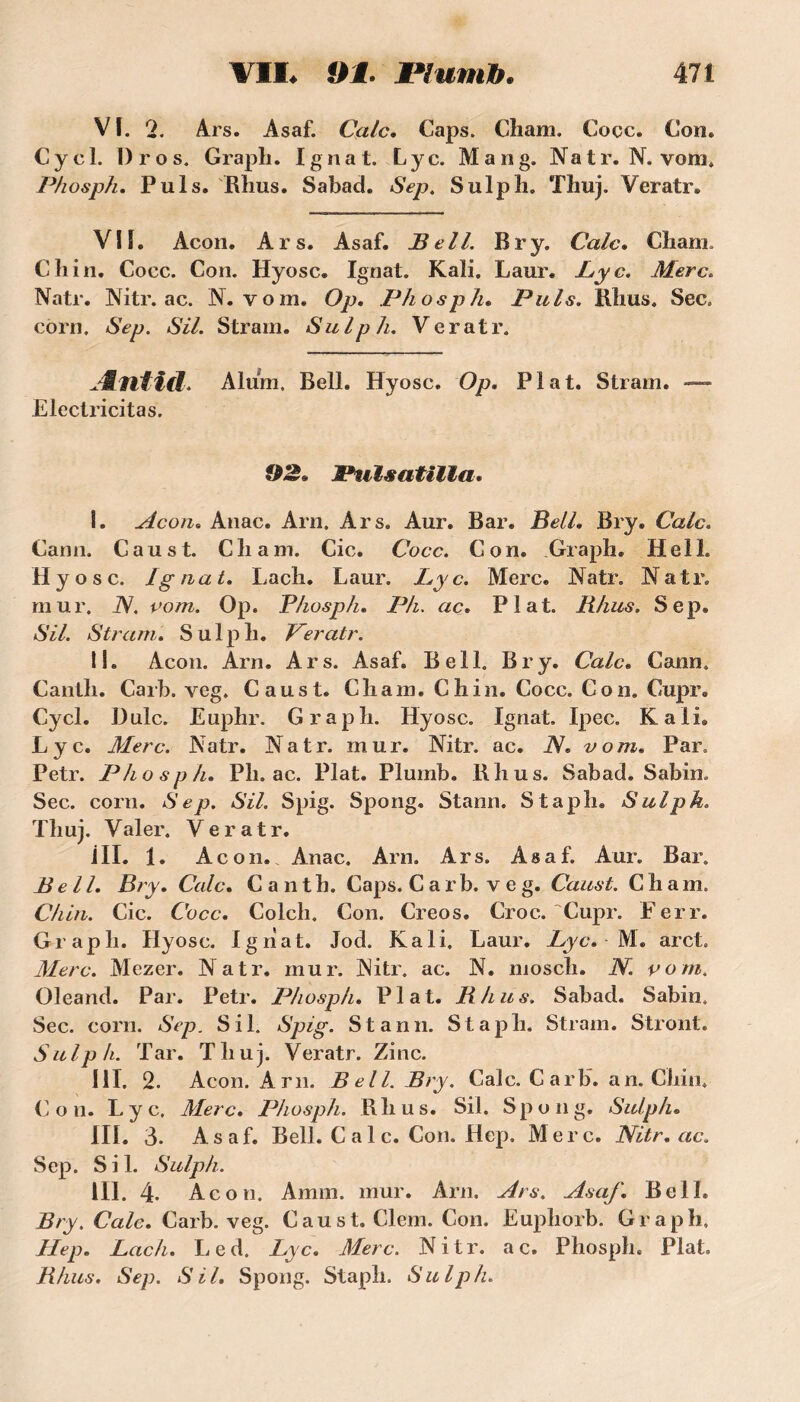 VII. 91. Plumb. 471
VI. 2. Ars. Asaf. Calc. Caps. Cham. Cocc. Con.
Cycl. Dros. Graph. Ignat. Lyc. Mang. Natr. N. vom.
Phosph. Puls. Rhus. Sabad. Sep. Sulph. Thuj. Veratr.
VII. Acon. Ars. Asaf. Bell. Bry. Calc. Cham.
Chin. Cocc. Con. Hyosc. Ignat. Kali. Laur. Lyc. Merc.
Natr. Nitr. ac. N. vom. Op. Phosph. Puls. Rhus. Sec.
corn. Sep. Sil. Stram. Sulph. Veratr.
Antid. Alum. Bell. Hyosc. Op. Plat. Stram. —
Electricitas.
92. Pulsatilla.
I. Acon. Anac. Arn. Ars. Aur. Bar. Bell. Bry. Calc.
Cann. Caust. Cham. Cic. Cocc. Con. Graph. Hell.
Hyosc. Ignat. Lach. Laur. Lyc. Merc. Natr. Natr.
mur. N. vom. Op. Phosph. Ph. ac. Plat. Rhus. Sep.
Sil. Stram. Sulph. Veratr.
II. Acon. Arn. Ars. Asaf. Bell. Bry. Calc. Cann.
Canth. Carb. veg. Caust. Cham. Chin. Cocc. Con. Cupr.
Cycl. Dulc. Euphr. Graph. Hyosc. Ignat. Ipec. Kali.
Lyc. Merc. Natr. Natr. mur. Nitr. ac. N. vom. Par.
Petr. Phosph. Ph. ac. Plat. Plumb. Rhus. Sabad. Sabin.
Sec. corn. Sep. Sil. Spig. Spong. Stann. Staph. Sulph.
Thuj. Valer. Veratr.
III. 1. Acon. Anac. Arn. Ars. Asaf. Aur. Bar.
Bell. Bry. Calc. Canth. Caps. Carb. veg. Caust. Cham.
Chin. Cic. Cocc. Colch. Con. Creos. Croc. Cupr. Ferr.
Graph. Hyosc. Ignat. Jod. Kali. Laur. Lyc. M. arct.
Merc. Mezer. Natr. mur. Nitr. ac. N. mosch. N. vom.
Oleand. Par. Petr. Phosph. Plat. Rhus. Sabad. Sabin.
Sec. corn. Sep. Sil. Spig. Stann. Staph. Stram. Stront.
Sulph. Tar. Thuj. Veratr. Zinc.
III. 2. Acon. Arn. Bell. Bry. Calc. Carb. an. Chin.
Con. Lyc. Merc. Phosph. Rhus. Sil. Spong. Sulph.
III. 3. Asaf. Bell. Calc. Con. Hep. Merc. Nitr. ac.
Sep. Sil. Sulph.
III. 4. Acon. Amm. mur. Arn. Ars. Asaf. Bell.
Bry. Calc. Carb. veg. Caust. Clem. Con. Euphorb. Graph.
Hep. Lach. Led. Lyc. Merc. Nitr. ac. Phosph. Plat.
Rhus. Sep. Sil. Spong. Staph. Sulph.